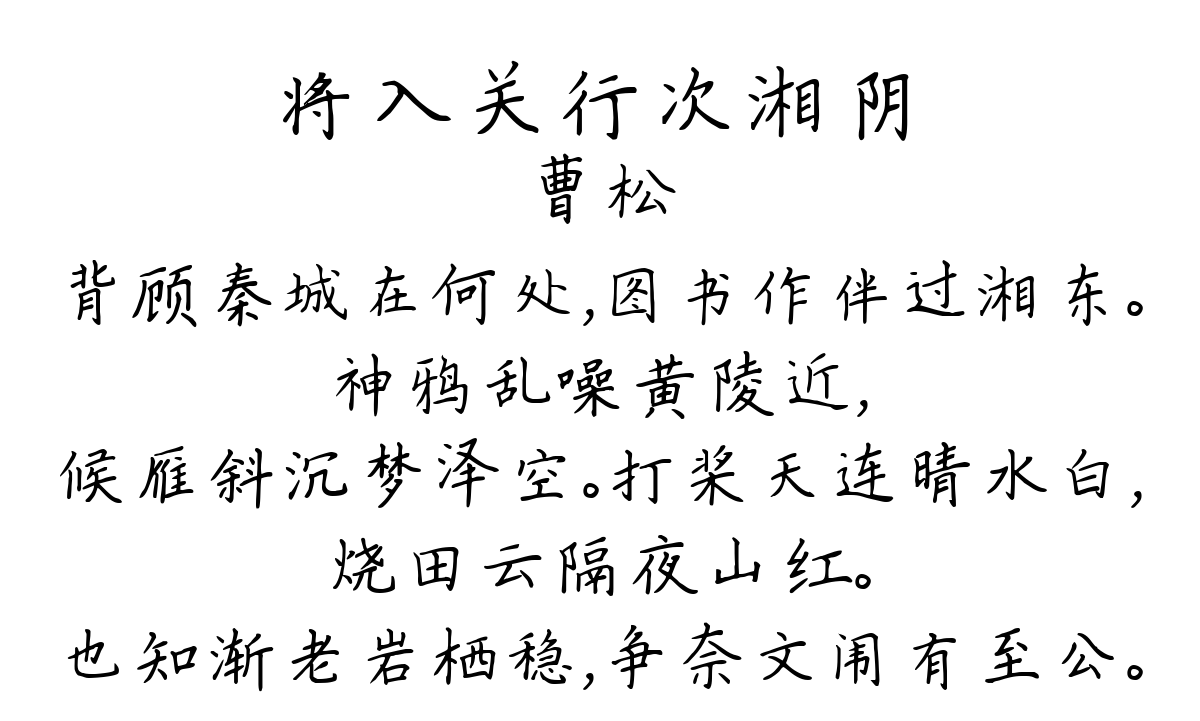 将入关行次湘阴
曹松
背顾秦城在何处,图书作伴过湘东。
神鸦乱噪黄陵近,
候雁斜沉梦泽空。打桨天连晴水白,
烧田云隔夜山红。
也知渐老岩栖稳,争奈文闱有至公。